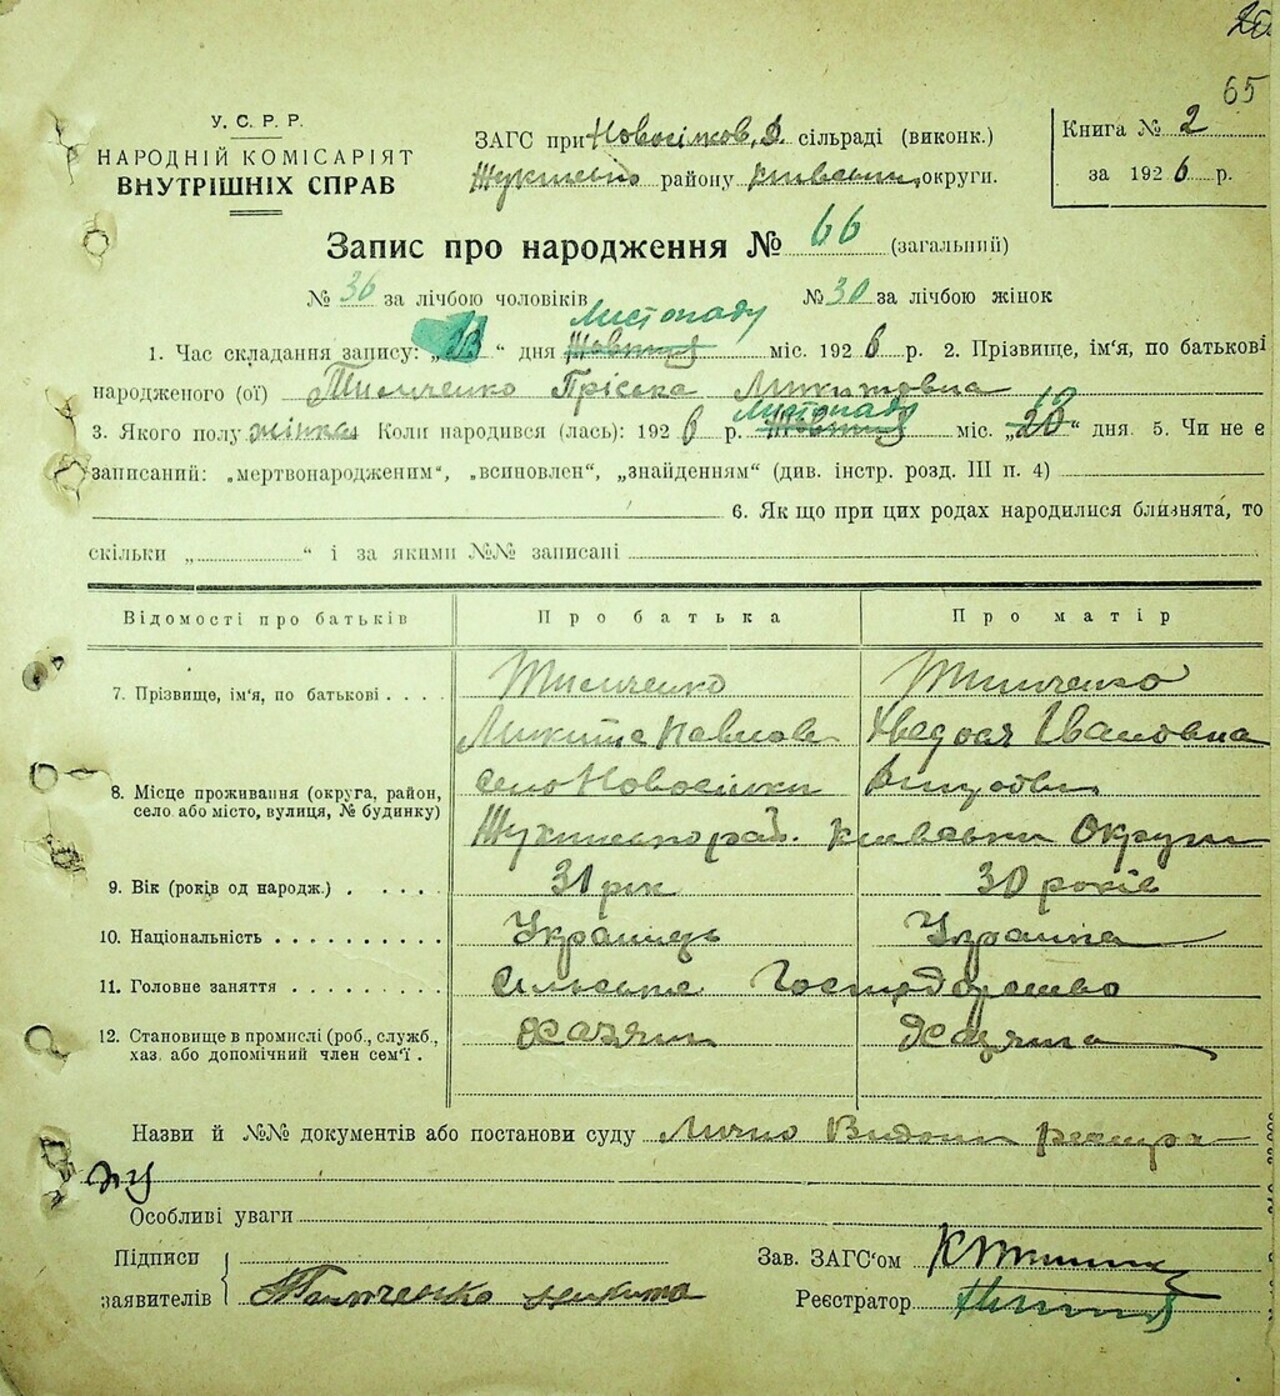 65
У. С. Р. Р.
НАРОДНІЙ КОМІСАРІЯТ
ВНУТРІШНІХ СПРАВ
ЗАГС при Новосілков. сільраді (виконк.)
району округи.
Книга № 2
за 1926 р.
Запис про народження № 66 (загальний)
№ 36 за лічбою чоловіків № 30 за лічбою жінок
Листопаду
1. Час складання запису: „ “ дня міс. 1926 р. 2. Прізвище, ім‘я, по батькові
народженого (ої) Тимченко Пріська Микитовна
Листопаду 12
3. Якого полу жінка Коли народився (лась): 1926 р. Жовтня міс. „20“ дня. 5. Чи не є
записаний: „мертвонародженим“, „всиновлен“, „знайденням“ (див. інстр. розд. III п. 4)
6. Як що при цих родах народилися близнята, то
скільки „ “ і за якими №№ записані
Відомості про батьків Про батька Про матір
7. Прізвище, ім‘я, по батькові Тимченко Тимченко
Микита Павлов Хведося Івановна
8. Місце проживання (округа, район,
село або місто, вулиця, № будинку) село Новосілки
рай. Київськи Округи
9. Вік (років од народж.) 31 рік 30 років
10. Національність Українець Українка
11. Головне заняття Сільське Господарство
12. Становище в промислі (роб., служб.,
хаз. або допомічний член сем‘ї Хазяин Хазяйка
Назви й №№ документів або постанови суду Лично
Особливі уваги
Підписи
заявителів Тимченко Микита
Зав. ЗАГС‘ом
Реєстратор